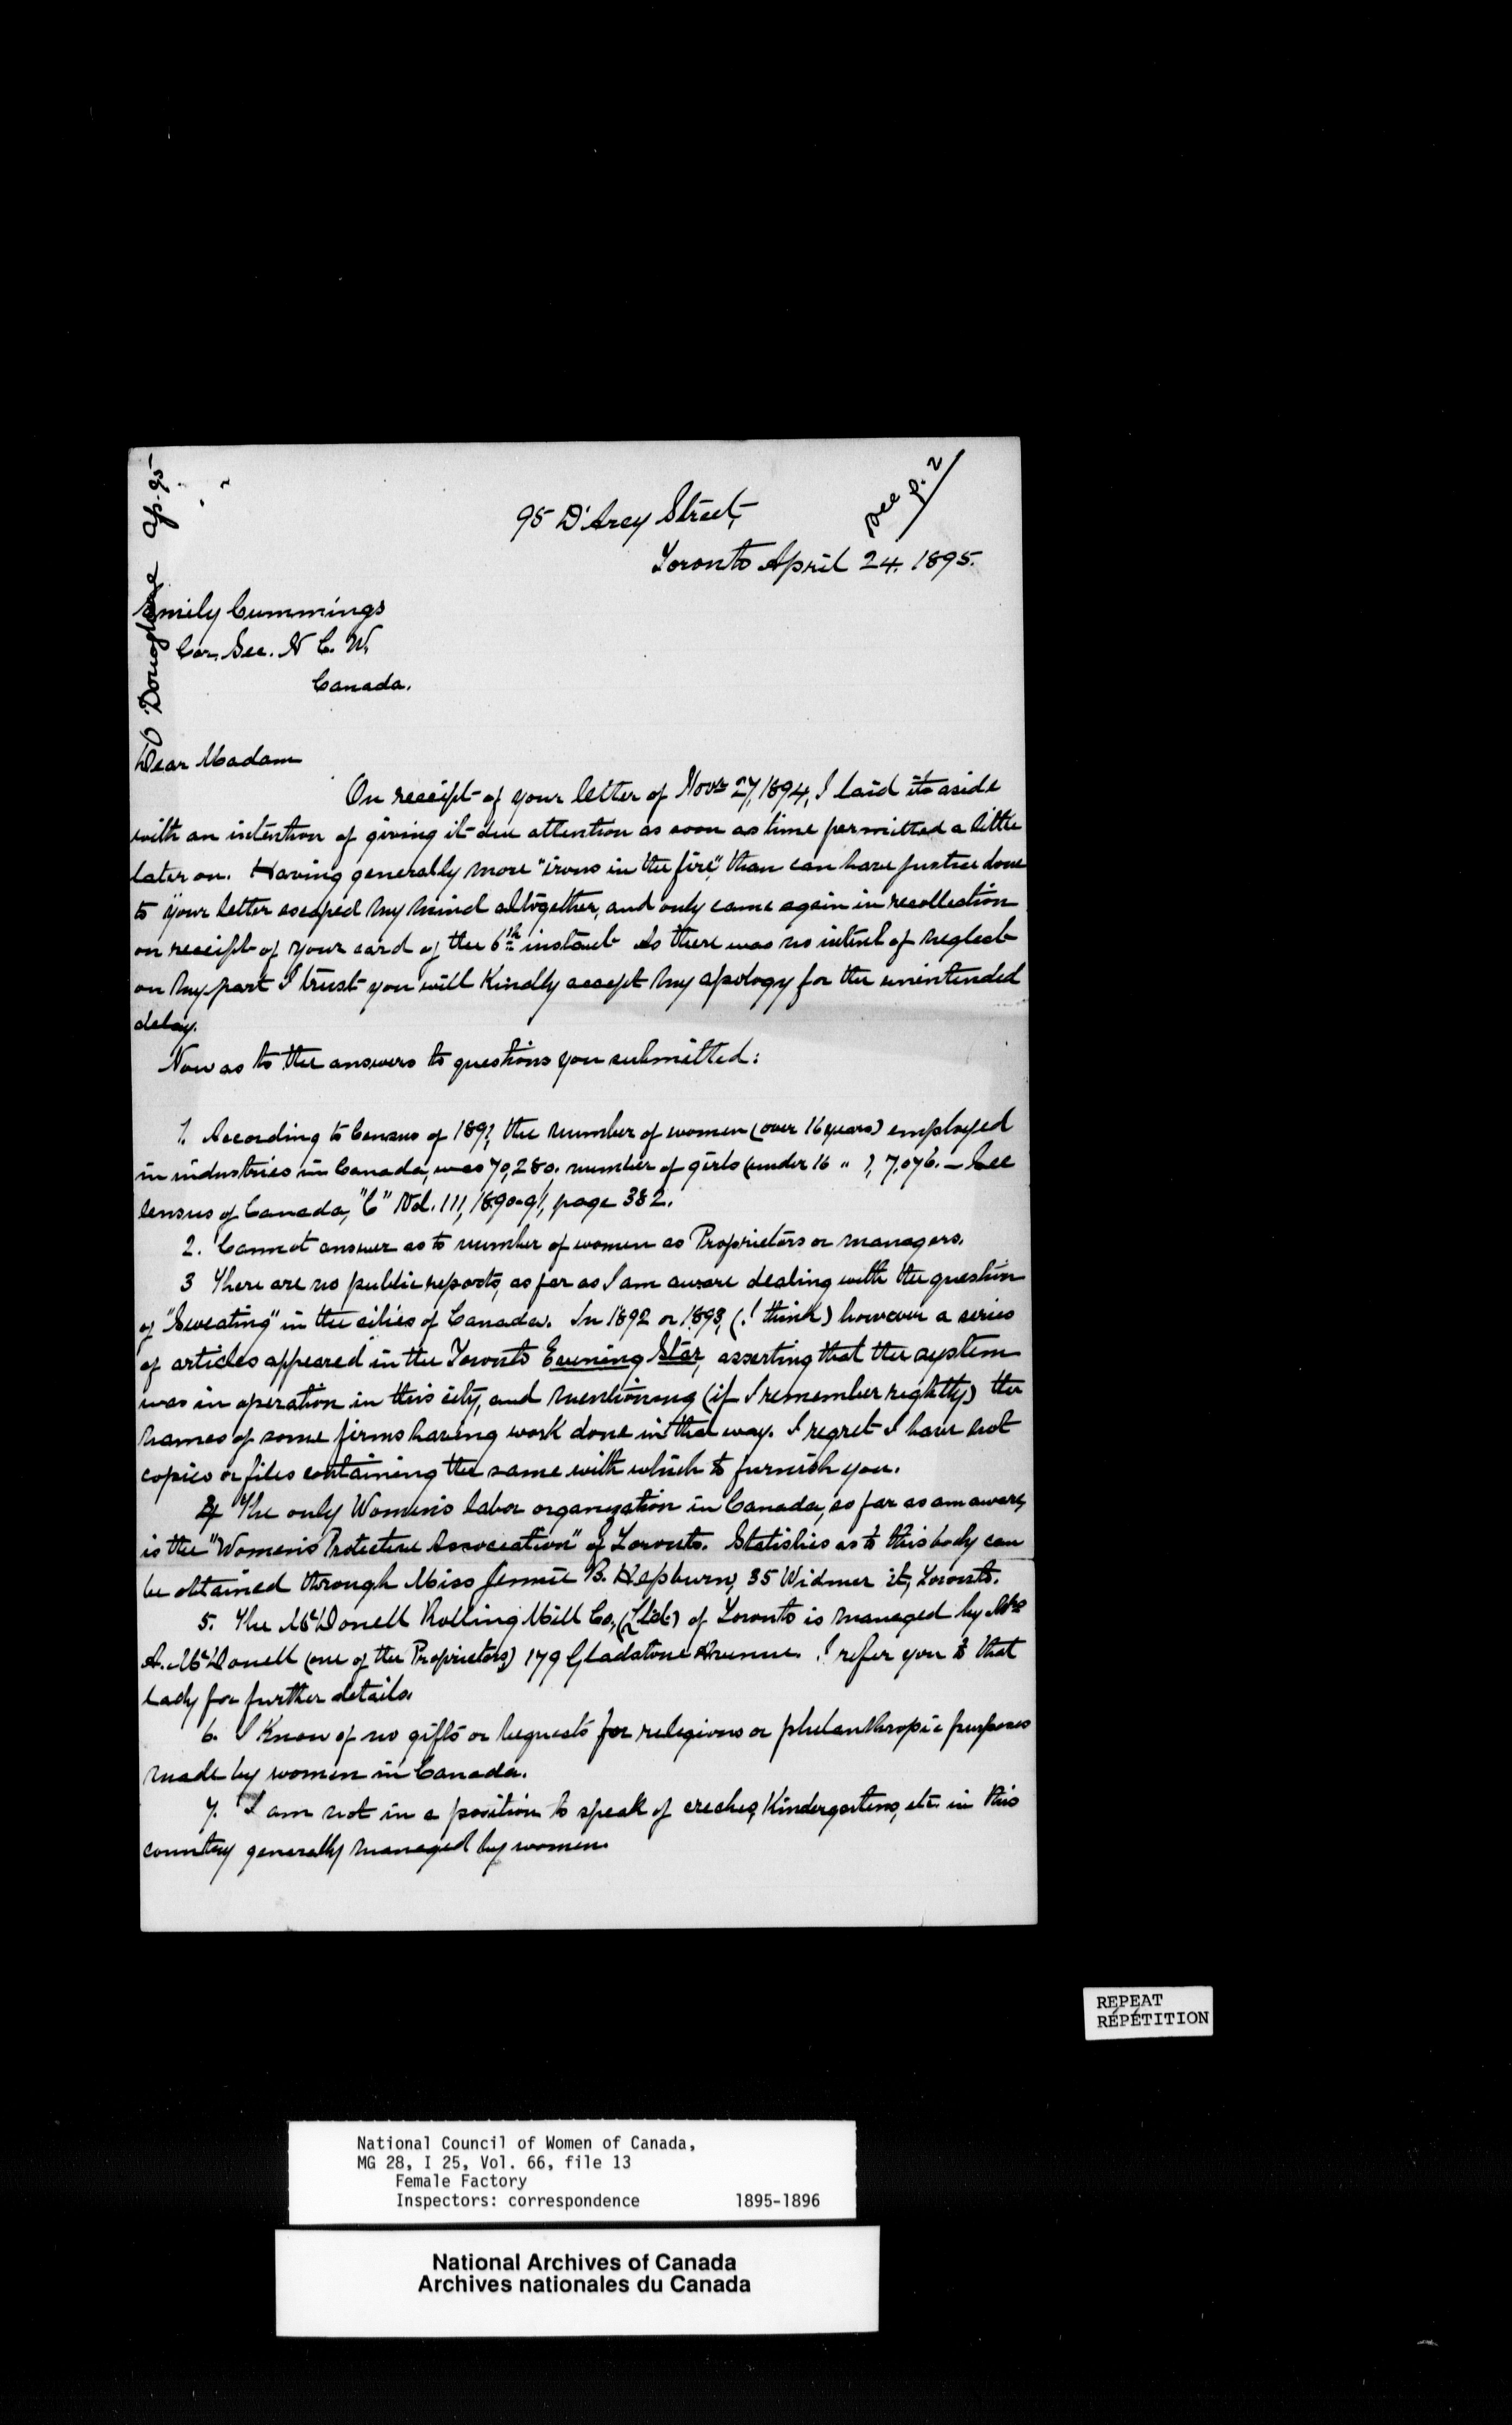 O Donoghue Ap. 95
see p. 2
95 D'Arcy Street,
Toronto April 24. 1895.
Emily Cummings
Cor. Sec. N C. W.
Canada.
Dear Madam
On receipt of your letter of Novr 27, 1894, I laid it aside
with an intention of giving it due attention as soon as time permitted a little
later on. Having generally more "irons in the fire," than can have justice done
to your letter escaped my mind altogether, and only came again in recollection
on receipt of your card of the 6th instant As there was no intent of neglect
on my part I trust you will kindly accept my apology for the unintended
delay.
Now as to the answers to questions you submitted:
1. According to Census of 1891, the number of women (over 16 years) employed
in industries in Canada, was 70,280; number of girls (under 16 "), 7,076. – See
Census of Canada, "C" Vol. 111, 1890-91, page 382.
2. Cannot answer as to number of women as Proprietors or managers.
3 There are no public reports, as far as I am aware dealing with the question
of "Sweating" in the cities of Canada. In 1892 or 1893, (I think) however a series
of articles appeared in the Toronto Evening Star, asserting that the system
was in operation in this city, and mentioning (if I remember rightly) the
names of some firms having work done in that way. I regret I have not
copies or files containing the same with which to furnish you.
4 The only Women's labor organization in Canada, so far as am aware,
is the "Women's Protective Association" of Toronto. Statistics as to this body can
be obtained through Miss Jennie B. Hepburn, 35 Widmer st, Toronto.
5. The McDonell Rolling Mill Co., (Ltd.) of Toronto is managed by Mrs
A. McDonell (one of the Proprietors) 179 Gladstone Avenue. I refer you to that
lady for further details.
6. I know of no gifts or bequests for religious or philanthropic purposes
made by women in Canada.
7. I am not in a position to speak of creches, Kindergartens, etc. in this
country generally managed by women.
REPEAT
RÉPÉTITION
National Council of Women of Canada,
MG 28, I 25, Vol. 66, file 13
Female Factory
Inspectors: correspondence 1895-1896
National Archives of Canada
Archives nationales du Canada